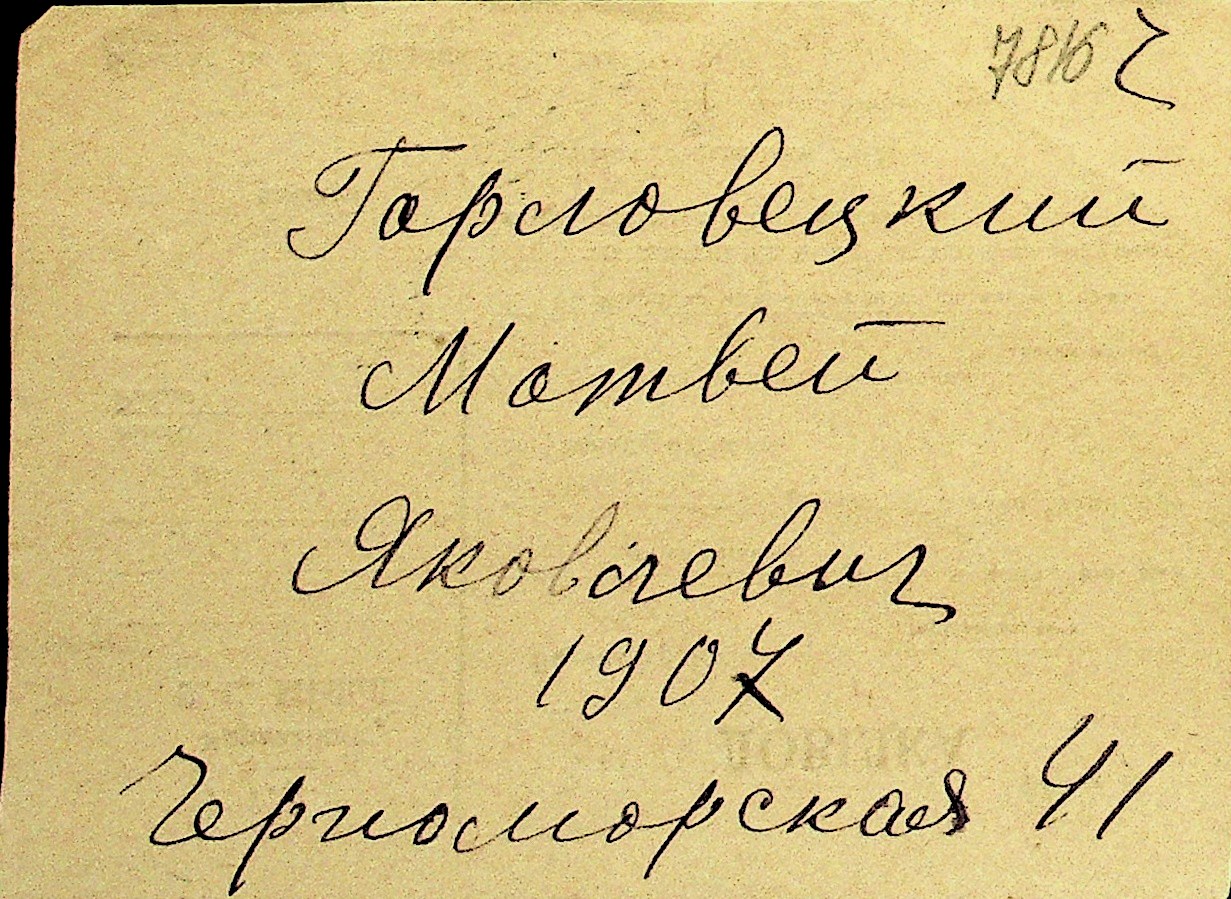 7816 ч
Горловецкий
Матвей
Яковлевич
1907
Черноморская 41